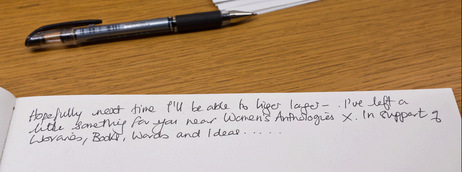 Hopefully next time I'll be able to linger longer - . I've left a
little something for you near Women's Anthologies X. In support of
Libraries, Books, Words and Ideas.....